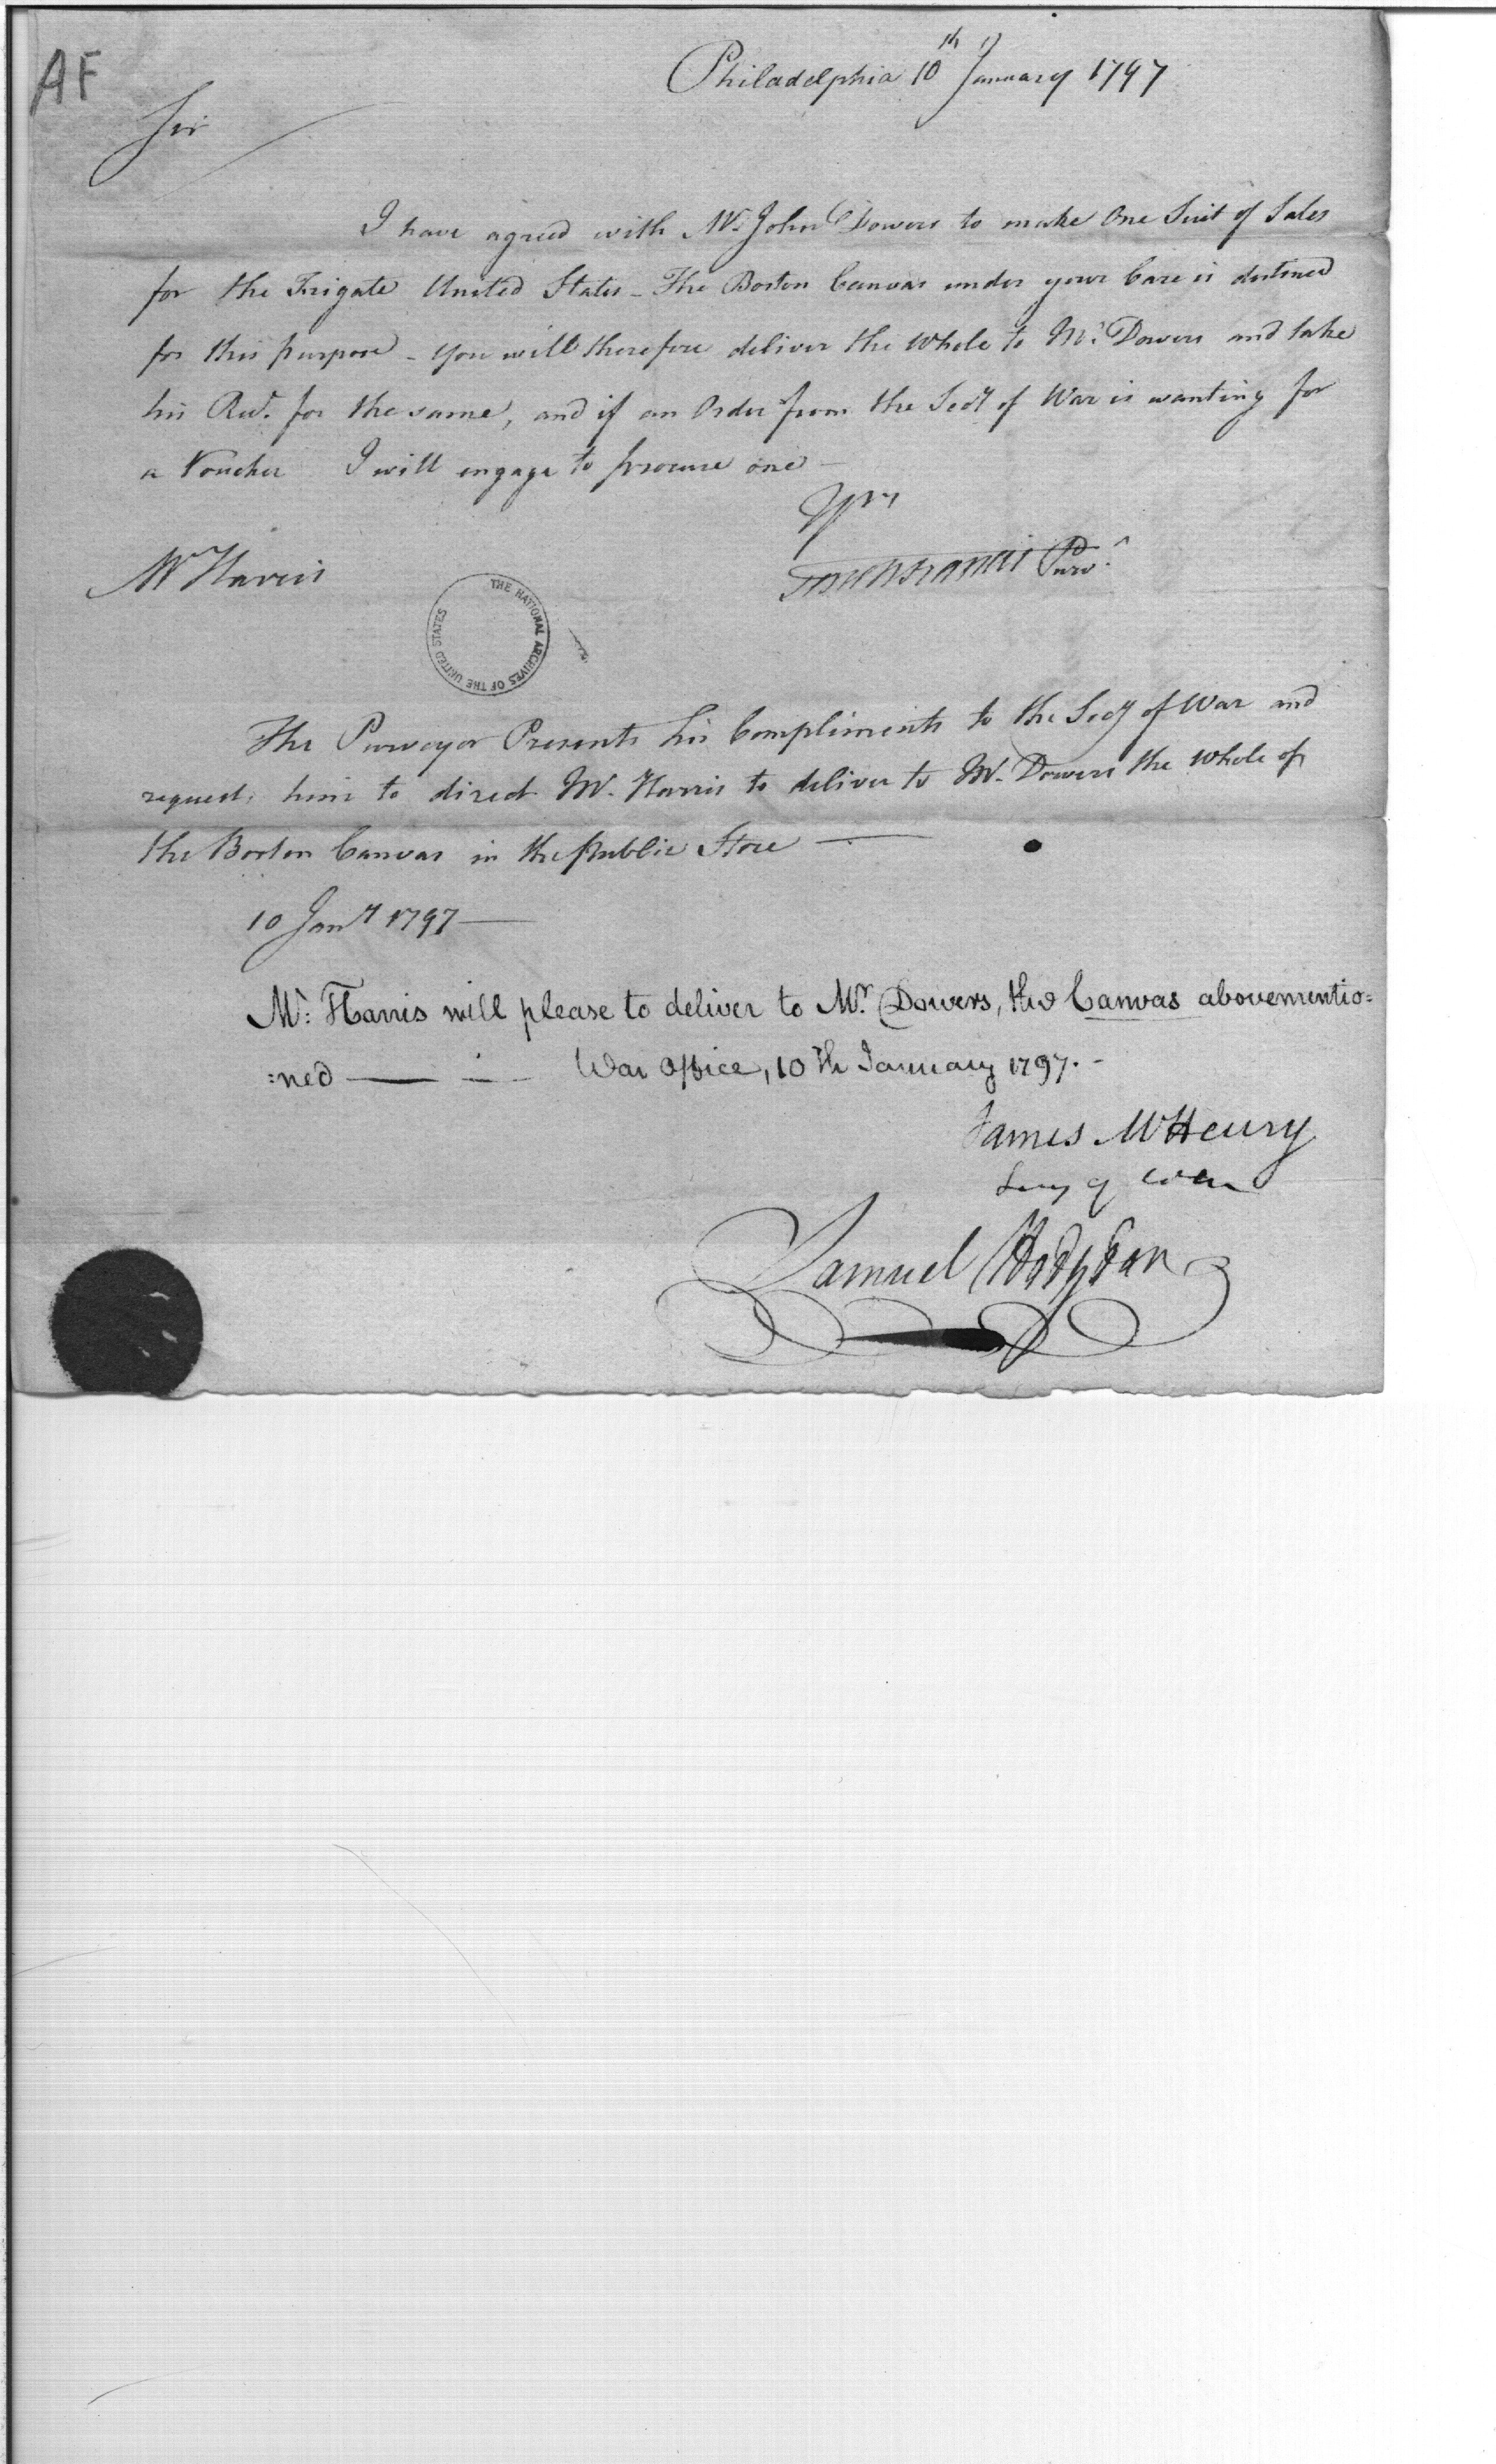 AF
Philadelphia 10th January 1797
Sir
I have agreed with Mr. John Dowers to make One Suit of Sales
for the Frigate United States - The Boston Canvas under your Care is destined
for this purpose - You will therefore deliver the Whole to Mr. Dowers and take
his Rect. for the same, and if an Order from the Secy of War is wanting for
a Voucher I will engage to procure one -
Yrs
Tench Francis Purvr.
Mr Harris
THE NATIONAL ARCHIVES OF THE UNITED STATES
The Purveyor Presents his Compliments to the Secy of War and
requests him to direct Mr. Harris to deliver to Mr. Dowers the Whole of
the Boston Canvas in the Public Store -
10 Jany 1797 -
Mr: Harris will please to deliver to Mr. Dowers, the Canvas abovementio=
:ned - War Office, 10th January 1797. -
James McHenry
Secy of War
Samuel Hodgdon